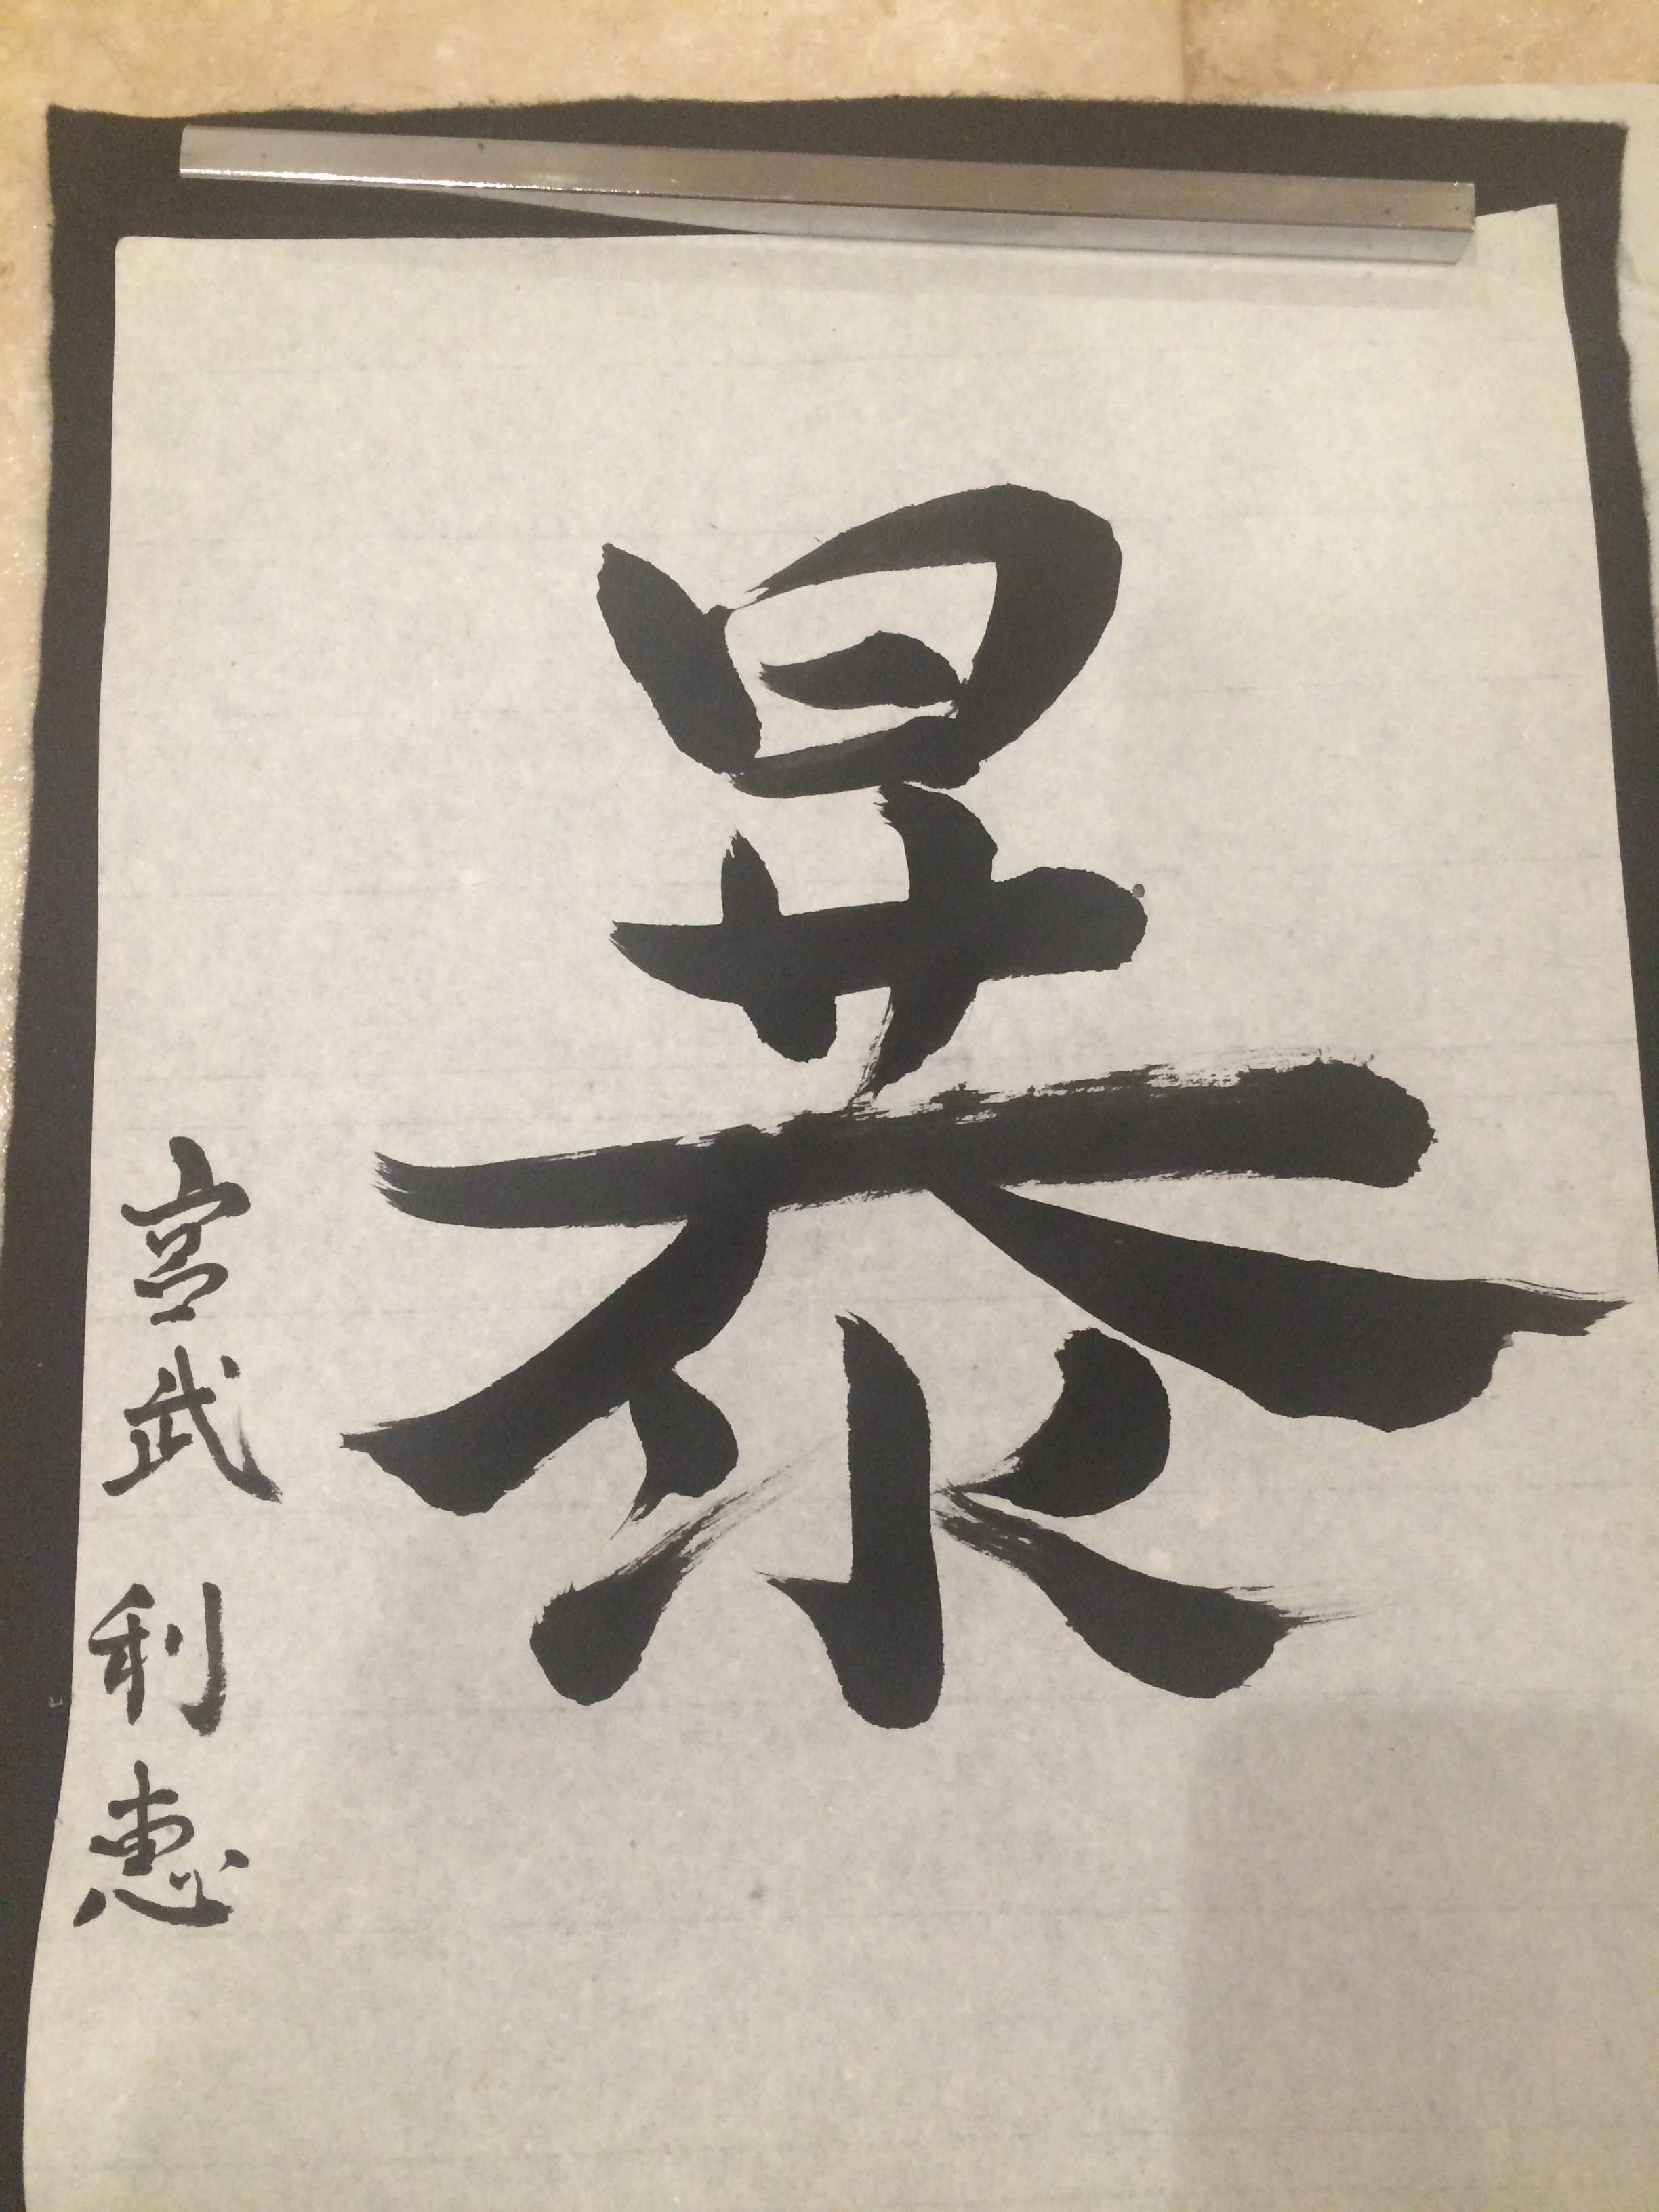 暴
宮武利恵